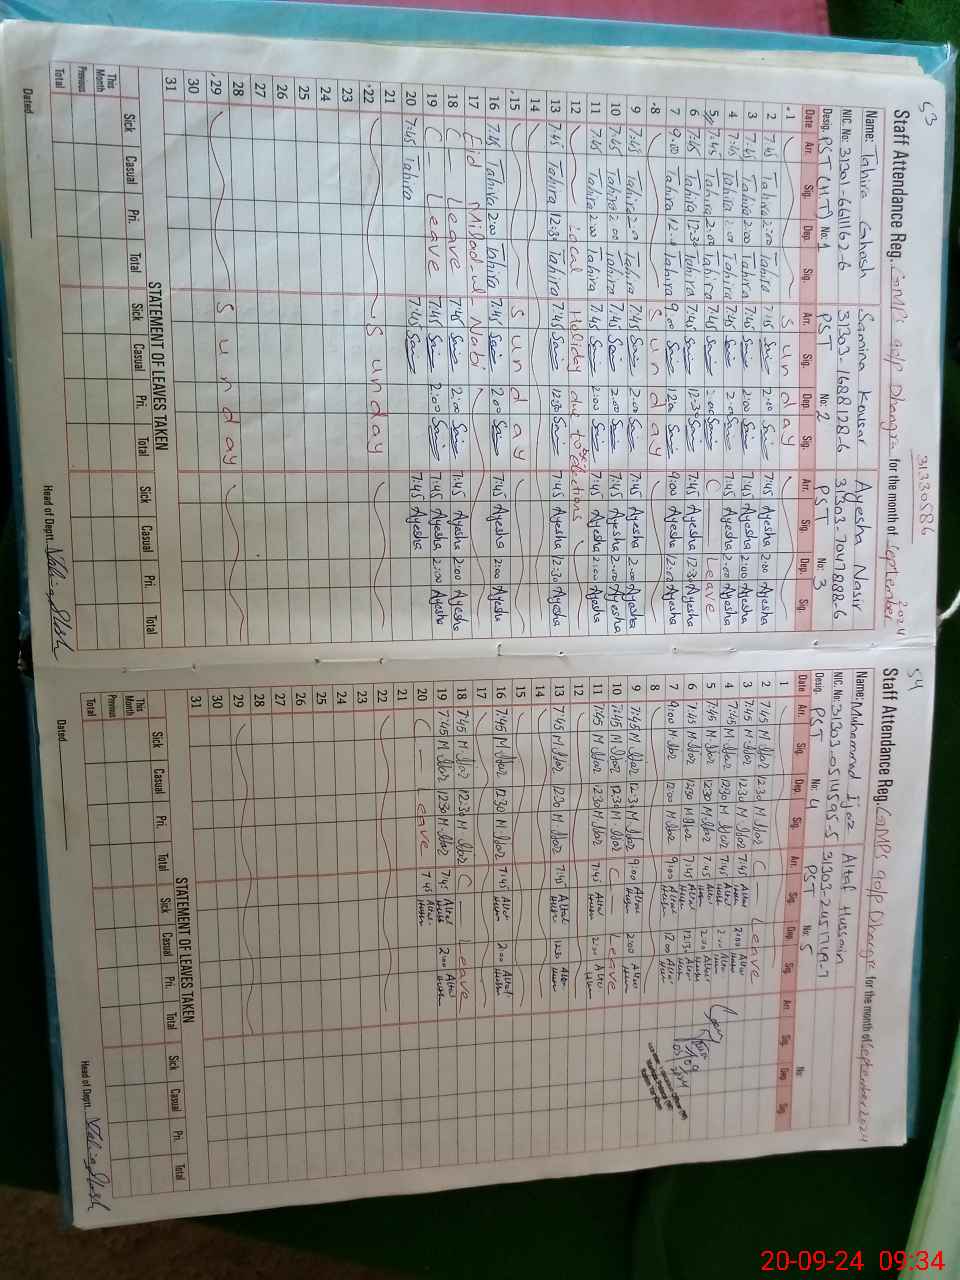 53
31330586
Staff Attendance Reg. GMPS go/p Dhangra for the month of September 2024
Name: Tahira Ghosh Samina Kousar Ayesha Nasir
NIC. No: 31301-6611162-6 31303-1688128-6 31303-7047888-6
Desig. PST (HT) No: 1 PST No: 2 PST No: 3
Date Arr. Sig. Dep. Sig. Arr. Sig. Dep. Sig. Arr. Sig. Dep. Sig.
1 Sunday
2 7:45 Tahira 2:00 Tahira 7:45 2:00 7:45 Ayesha 2:00 Ayesha
3 7:45 Tahira 2:00 Tahira 7:45 2:00 7:45 Ayesha 2:00 Ayesha
4 7:45 Tahira 2:00 Tahira 7:45 2:00 7:45 Ayesha 2:00 Ayesha
5 7:45 Tahira 2:00 Tahira 7:45 2:00 Leave
6 7:45 Tahira 12:30 Tahira 7:45 12:30 7:45 Ayesha 12:30 Ayesha
7 9:00 Tahira 12:00 Tahira 9:00 12:00 9:00 Ayesha 12:00 Ayesha
8 Sunday
9 7:45 Tahira 2:00 Tahira 7:45 2:00 7:45 Ayesha 2:00 Ayesha
10 7:45 Tahira 2:00 Tahira 7:45 2:00 7:45 Ayesha 2:00 Ayesha
11 7:45 Tahira 2:00 Tahira 7:45 2:00 7:45 Ayesha 2:00 Ayesha
12 Local Holiday due to elections
13 7:45 Tahira 12:30 Tahira 7:45 12:30 7:45 Ayesha 12:30 Ayesha
14
15 Sunday
16 7:45 Tahira 2:00 Tahira 7:45 2:00 7:45 Ayesha 2:00 Ayesha
17 Eid Milad-ul-Nabi
18 Leave 7:45 2:00 7:45 Ayesha 2:00 Ayesha
19 Leave 7:45 2:00 7:45 Ayesha 2:00 Ayesha
20 7:45 Tahira 7:45 7:45 Ayesha
21
22 Sunday
23
24
25
26
27
28
29 Sunday
30
31
STATEMENT OF LEAVES TAKEN
Sick Casual Pri. Total Sick Casual Pri. Total Sick Casual Pri. Total
This Month
Previous
Total
Dated Head of Deptt.
54
Staff Attendance Reg. GMPS go/p Dhangra for the month of September 2024
Name: Muhammad Ijaz Altaf Hussain
NIC. No: 31303-0514595-5 31303-2451749-7
Desig. PST No: 4 PST No: 5 No:
Date Arr. Sig. Dep. Sig. Arr. Sig. Dep. Sig. Arr. Sig. Dep. Sig.
1
2 7:45 M.Ijaz 12:30 M.Ijaz Leave
3 7:45 M.Ijaz 12:30 M.Ijaz 7:45 Altaf 2:00 Altaf
4 7:45 M.Ijaz 12:30 M.Ijaz 7:45 Altaf 2:00 Altaf
5 7:45 M.Ijaz 12:30 M.Ijaz 7:45 Altaf 2:00 Altaf
6 7:45 M.Ijaz 12:30 M.Ijaz 7:45 Altaf 12:30 Altaf
7 9:00 M.Ijaz 12:00 M.Ijaz 9:00 Altaf 12:00 Altaf
8
9 7:45 M.Ijaz 12:30 M.Ijaz 9:00 Altaf 2:00 Altaf
10 7:45 M.Ijaz 12:30 M.Ijaz Leave
11 7:45 M.Ijaz 12:30 M.Ijaz 7:45 Altaf 2:00 Altaf
12
13 7:45 M.Ijaz 12:30 M.Ijaz 7:45 Altaf 12:30 Altaf
14
15
16 7:45 M.Ijaz 12:30 M.Ijaz 7:45 Altaf 2:00 Altaf
17
18 7:45 M.Ijaz 12:30 M.Ijaz Leave
19 7:45 M.Ijaz 12:30 M.Ijaz 7:45 Altaf 2:00 Altaf
20 Leave 7:45 Altaf
21
22
23
24
25
26
27
28
29
30
31
STATEMENT OF LEAVES TAKEN
Sick Casual Pri. Total Sick Casual Pri. Total Sick Casual Pri. Total
This Month
Previous
Total
Dated Head of Deptt.
20-09-24 09:34